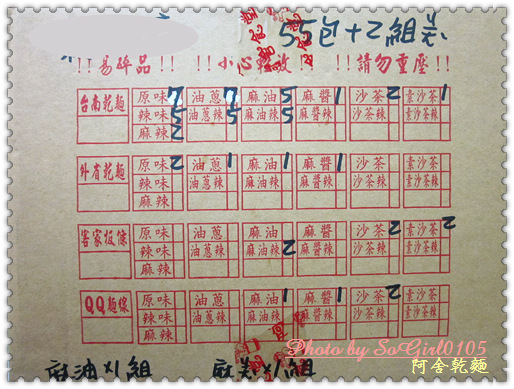 55包+2組
!!易碎品!! !!小心輕放!! !!請勿重壓!!
台南乾麵 原味 7 油蔥 7 麻油 5 麻醬 1 沙茶 2 素沙茶 1
辣味 5 油蔥辣 5 麻油辣 5 麻醬辣 沙茶辣 素沙茶辣
麻辣 2
外省乾麵 原味 2 油蔥 1 麻油 1 麻醬 1 沙茶 素沙茶
辣味 油蔥辣 麻油辣 麻醬辣 沙茶辣 素沙茶辣
麻辣
客家板條 原味 油蔥 麻油 麻醬 沙茶 2 素沙茶 2
辣味 油蔥辣 麻油辣 2 麻醬辣 沙茶辣 素沙茶辣
麻辣
QQ麵線 原味 油蔥 麻油 1 麻醬 1 沙茶 2 素沙茶
辣味 油蔥辣 麻油辣 麻醬辣 沙茶辣 素沙茶辣
麻辣
Photo by SoGirl0105
麻油x1組 麻x1組
阿舍乾麵